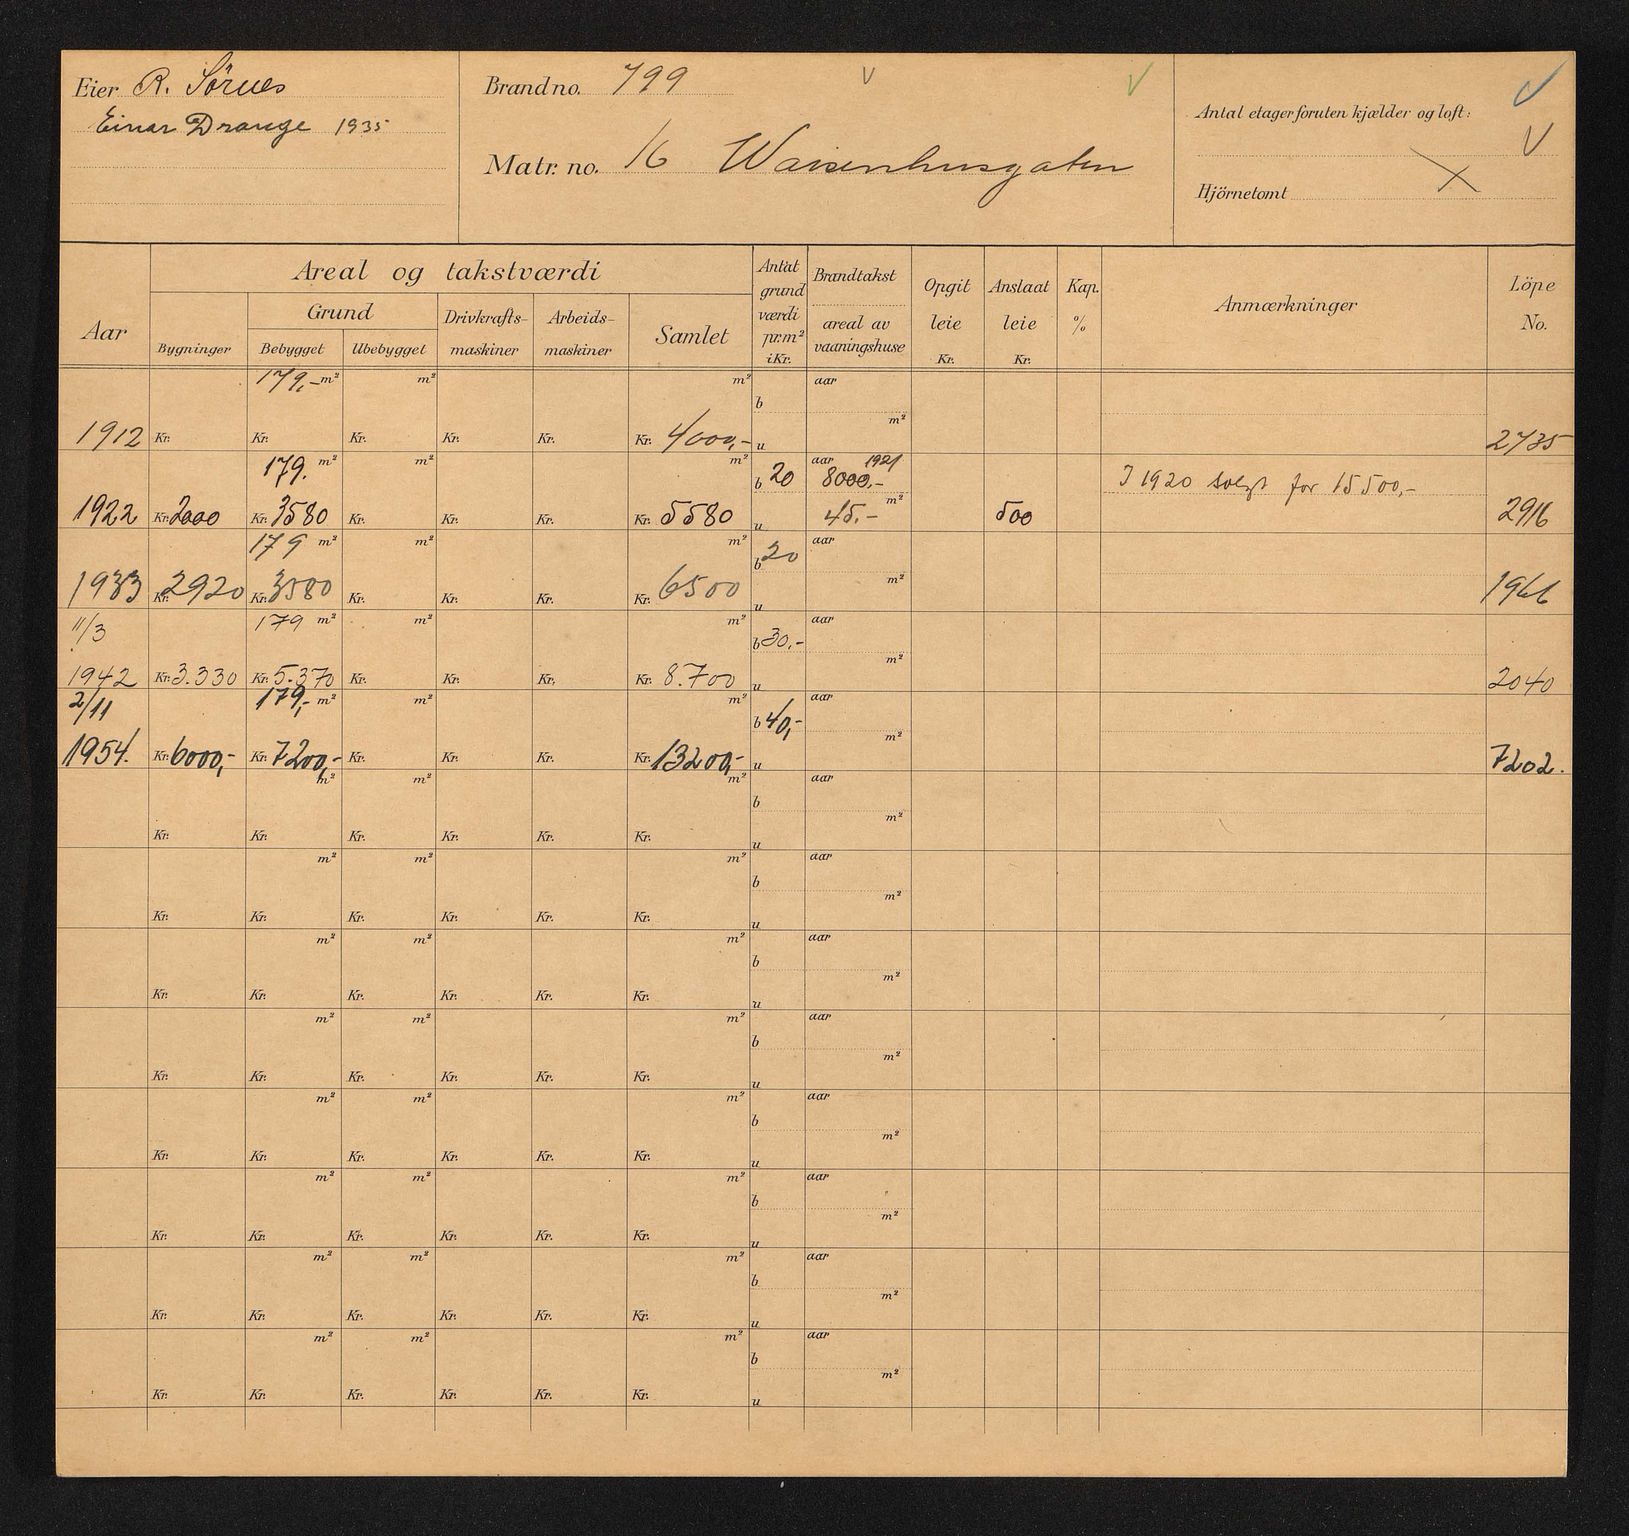 Eier R. Sörnes
Einar Drange 1935
Brand no. 799
Matr. no. 16 Waisenhusgaten
Antal etager foruten kjælder og loft:
Hjörnetomt
Aar
Areal og takstværdi
Bygninger
Grund
Bebygget Ubebygget
Drivkrafts-
maskiner
Arbeids-
maskiner
Samlet
Antat
grund
værdi
pr.m²
i Kr.
Brandtakst
areal av
vaaningshuse
Opgit
leie
Kr.
Anslaat
leie
Kr.
Kap.
%
Anmærkninger
Löpe
No.
179,- m² m² m² b aar
m²
1912 Kr. Kr. Kr. Kr. Kr. Kr. 4000,- u 2735
179. m² m² m² b 20 aar 1921
8000,- I 1920 solgt for 15500,-
m²
1922 Kr. 2000 Kr. 3580 Kr. Kr. Kr. Kr. 5580 u 45.- 500 2916
179 m² m² m² b 20 aar
m²
1933 Kr. 2920 Kr. 3580 Kr. Kr. Kr. Kr. 6500 u 1966
11/3 179 m² m² m² b 30.- aar
m²
1942 Kr. 3.330 Kr. 5.370 Kr. Kr. Kr. Kr. 8.700 u 2040
2/11 179,- m² m² m² b 40,- aar
m²
1954. Kr. 6000,- Kr. 7200,- Kr. Kr. Kr. Kr. 13200,- u 7202.
m² m² m² aar
b m²
Kr. Kr. Kr. Kr. Kr. Kr. u
m² m² m² aar
b m²
Kr. Kr. Kr. Kr. Kr. Kr. u
m² m² m² aar
b m²
Kr. Kr. Kr. Kr. Kr. Kr. u
m² m² m² aar
b m²
Kr. Kr. Kr. Kr. Kr. Kr. u
m² m² m² aar
b m²
Kr. Kr. Kr. Kr. Kr. Kr. u
m² m² m² aar
b m²
Kr. Kr. Kr. Kr. Kr. Kr. u
m² m² m² aar
b m²
Kr. Kr. Kr. Kr. Kr. Kr. u
m² m² m² aar
b m²
Kr. Kr. Kr. Kr. Kr. Kr. u